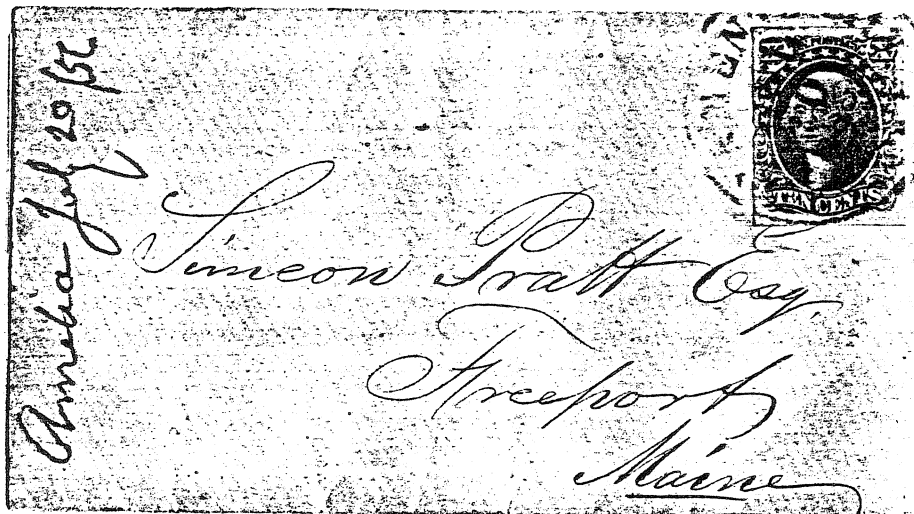 Amelia July 20/56
TEN CENTS
Simeon Pratt Esq.
Freeport
Maine